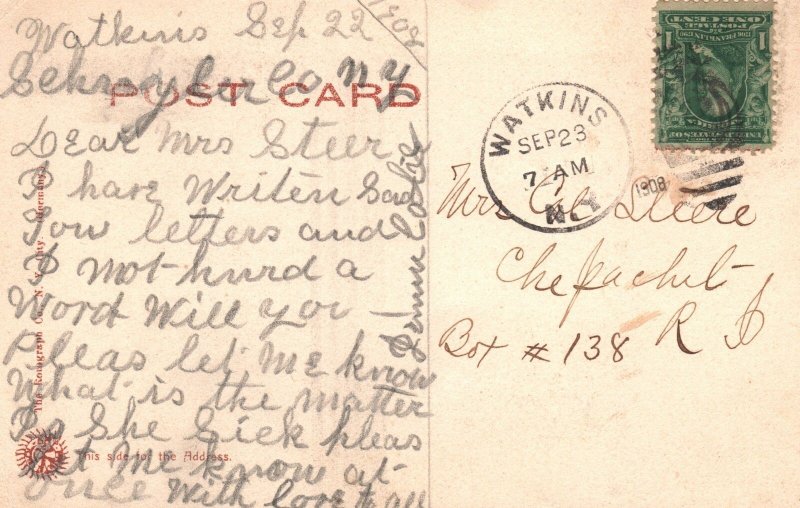 Watkins Sep 22
1908
Schuyler Co N Y
POST CARD
Dear Mrs Steer
I have Writen Sad
Tow letters and
I not hurd a
Word Will you
Pleas let me know
What is the matter
Is She Sick pleas
let me know at
once With love to all
The Rotograph Co., N. Y. City. (Germany)
This side for the Address.
WATKINS
SEP 23
7 AM
N.Y.
1908
ONE CENT
POSTAGE
FRANKLIN
1 1
Mrs
Steere
Chepachet
Box # 138 R I